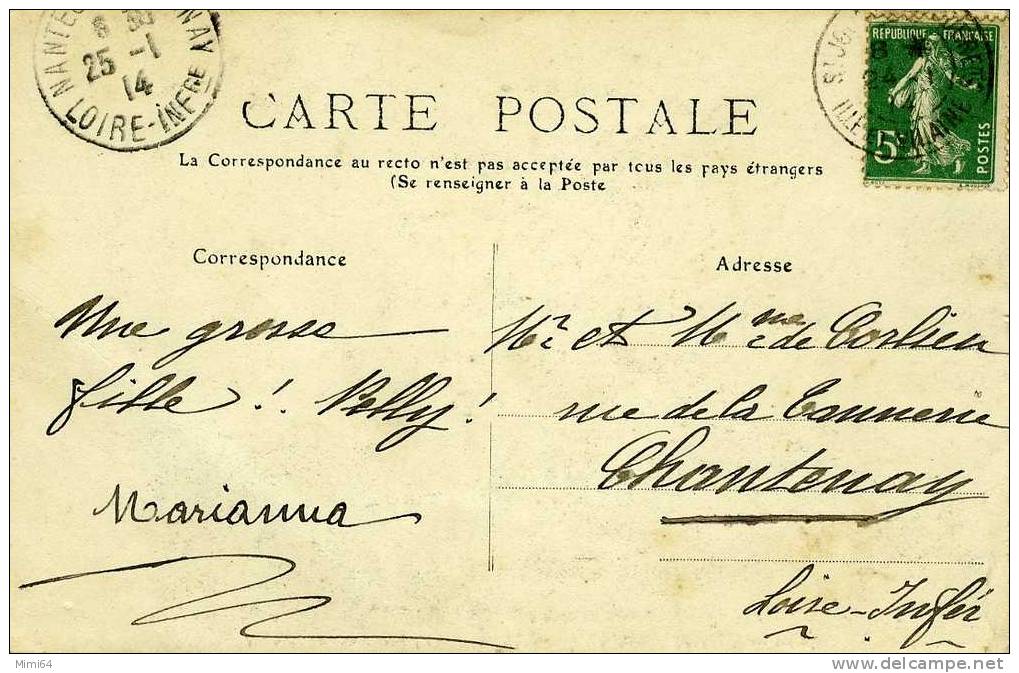 NANTES
NAY
25 -1
14
LOIRE-INFRE
ILLE
RÉPUBLIQUE FRANÇAISE
5c
POSTES
CARTE POSTALE
La Correspondance au recto n'est pas acceptée par tous les pays étrangers
(Se renseigner à la Poste
Correspondance
Adresse
Une grosse
fille !. Nelly !
Marianna
Mr et Mme de Corlieu
rue de la Tannerie
Chantenay
Loire-Infér
Mimi64
www.delcampe.net